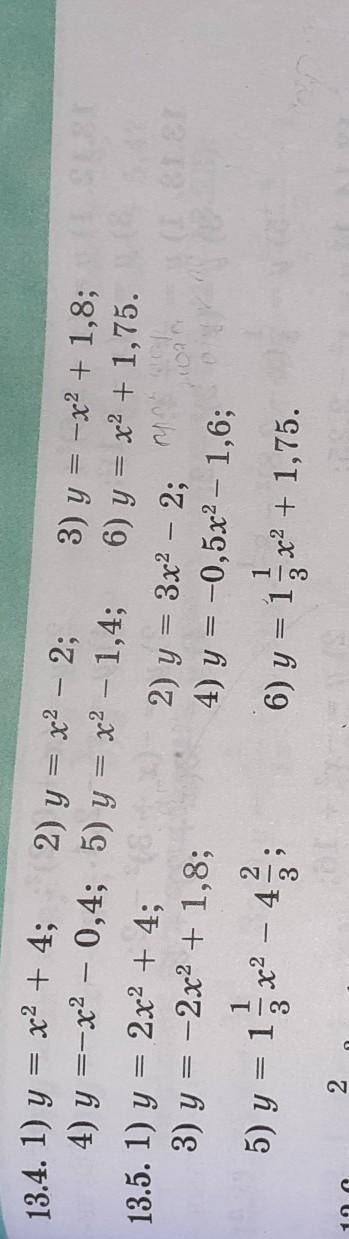 13.4. 1) y = x² + 4; 2) y = x² – 2; 3) y = –x² + 1,8;
4) y =–x² – 0,4; 5) y = x² – 1,4; 6) y = x² + 1,75.
13.5. 1) y = 2x² + 4; 2) y = 3x² – 2;
3) y = –2x² + 1,8; 4) y = –0,5x² – 1,6;
5) y = 1 1/3 x² – 4 2/3; 6) y = 1 1/3 x² + 1,75.
2